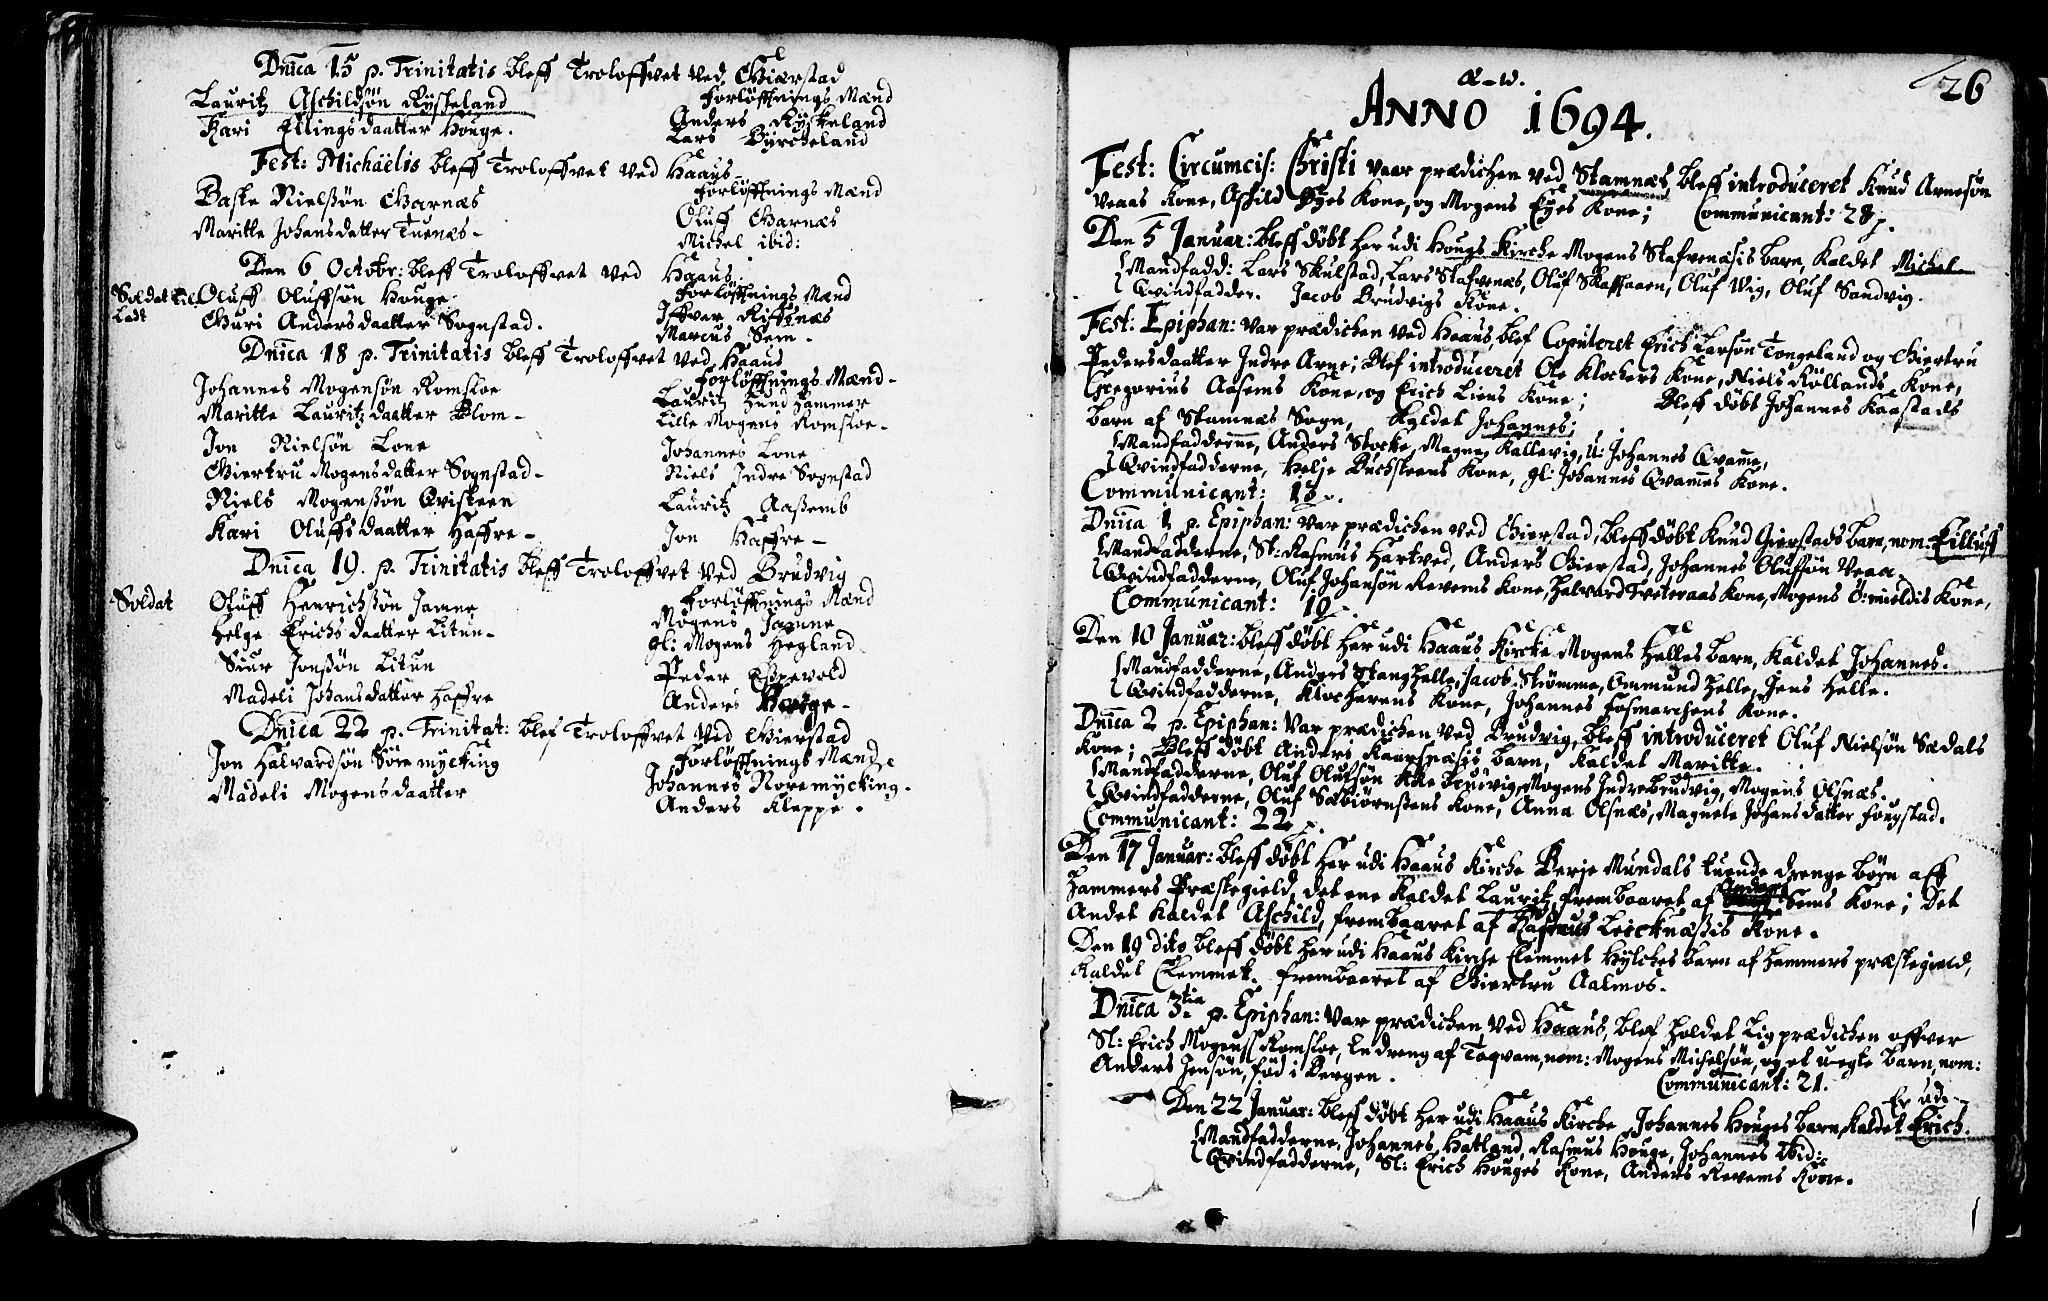 Dnica 15 p. Trinitatis bleff Troloffvet ved Gierstad
Lauritz Aschildsøn Rysheland
Forløffnings Mænd
Kari Ellingsdaatter Houge.
Anders Ryskeland
Lars Byrckeland
Fest: Michaëlis bleff Troloffvet ved Haaus
Baste Nielssøn Garnæs
Forløffnings Mænd
Maritte Johansdatter Tuenæs
Oluff Garnæs
Michel ibid:
Den 6 Octobr: bleff Troloffvet ved Haaus
Soldat til Ladt
Oluff Oluffsøn Houge
Forløffnings Mænd
Guri Andersdaatter Sognstad.
Iffver Riffnæs
Marcus Sem
Dnica 18 p. Trinitatis bleff Troloffvet ved Haaus
Forløffnings Mænd
Johannes Mogensøn Romsloe
Lauritz Hundhammer
Maritte Lauritzdaatter Blom
Lille Mogens Romsloe
Jon Nielsøn Lone
Johannes Lone
Giertru Mogensdatter Sognstad
Niels Indre Sognstad
Niels Mogenssøn Qvisteen
Lauritz Aassemb
Kari Oluffsdaatter Haffre
Jon Haffre
Dnica 19. p. Trinitatis bleff Troloffvet ved Brudvig
Soldat
Oluff Henrichssøn Jamne
Forløffnings Mænd
Mogens Jamne
Helge Erichsdaatter Litun
gl: Mogens Hegland
Siur Jonssøn Litun
Peder Espevold
Madeli Johansdatter Haffre
Anders
Dnica 22 p. Trinitat: blef Troloffvet ved Gierstad
Jon Halvardsøn Søremycking
Forløffnings Mænd
Madeli Mogensdaatter
Johannes Noremycking.
Anders Kleppe.
26
ANNO 1694.
Fest: Circumcis: Christi vaar prædichen ved Stamnæs, bleff introduceret Knud Arnesøn
Veaas Kone, Aschild Øyes Kone, og Mogens Eyes Kone; Communicant: 28 p.
Den 5 Januar: bleff døbt her udi Hougs Kirche Mogens Stafvenæsis barn, kaldet Michel
Mandfadd: Lars Skulstad, Lars Stafvenæs, Oluf Skaffhaaen, Oluf Wig, Oluf Sandvig.
Qvindfadder. Jacob Brudvigs Kone.
Fest: Epiphan: var prædichen ved Haaus, blef Copuleret Erich Larsøn Tongeland og Giertru
Pedersdaatter Indre Arne; Blef introduceret Ole Klockers Kone, Niels Røllands Kone,
Gregorius Aasems Kone, og Erich Liens Kone; Bleff døbt Johannes Kaastads
barn af Stamnæs Sogn, kaldet Johannes;
Mandfadderne, Anders Storke, Magne Kallevig, Johannes Qvame,
Qvindfadderne, Helje Buchsteens Kone, gl: Johannes Qvames Kone.
Communicant: 18.
Dnica 1 p. Epiphan: var prædichen ved Gierstad, bleff døbt Knud Gierstads barn, nom: Eilluff
Mandfadderne, Sl: Rasmus Hartved, Anders Gierstad, Johannes Olufsøn Veaa
Qvindfadderne, Oluf Johansøn Revems Kone, Halvard Tveteraas Kone, Mogens Ø:mieldis Kone,
Communicant: 19.
Den 10 Januar: bleff døbt her udi Haaus Kircke Mogens Helles barn, kaldet Johannes.
Mandfadderne, Anders Stanghelle, Jacob Strømme, Ommund Helle, Jens Helle.
Qvindfadderne, Klocherens Kone, Johannes Fosmarchens Kone.
Dnica 2 p. Epiphan: var prædichen ved Brudvig, bleff introduceret Oluf Nielsøn Sædals
Kone; Bleff døbt Anders Kaarsnæsis barn, kaldet Maritte.
Mandfadderne, Oluf Olufsøn Ytre Brudvig, Mogens Indrebrudvig, Mogens Olsnæs.
Qvindfadderne, Oluf Sæbiørnssens Kone, Anna Olsnæs, Magnele Johansdatter Fougstad.
Communicant: 22
Den 17 Januar: bleff døbt her udi Haaus Kirche Berje Mundals tuende drenge børn aff
Hammers Præstegield, det ene kaldet Lauritz, frembaaret af Anders Sems Kone; Det
Andet kaldet Aschild, frembaaret af Rasmus Leiknæssis Kone.
Den 19 dito bleff døbt her udi Haaus Kirche Clemmet Hylches barn af Hammers præstegield,
kaldet Clemmet. frembaaret af Giertru Aalmos.
Dnica 3tia p. Epiphan: var prædichen ved Haaus, blef holdet Lig prædichen offver
Sl: Erich Mogenss Romsloe, En dreng af Taqvam, nom: Mogens Michelsøn, og et u-egte barn, nom:
Anders Jensøn, fød i Bergen. Communicant: 21.
Den 22 Januar: bleff døbt her udi Haaus Kirche Johannes Houges barn, kaldet Erich.
Mandfadderne, Johannes Hatland, Rasmus Houge, Johannes ibid:
Qvindfadderne, Sl: Erich Houges Kone, Anders Revems Kone.